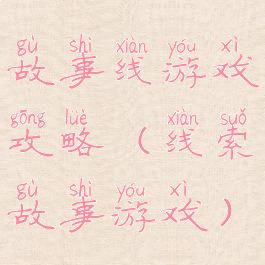 gù shì xiàn yóu xì
故事线游戏
gōng lüè xiàn suǒ
攻略（线索
gù shì yóu xì
故事游戏）